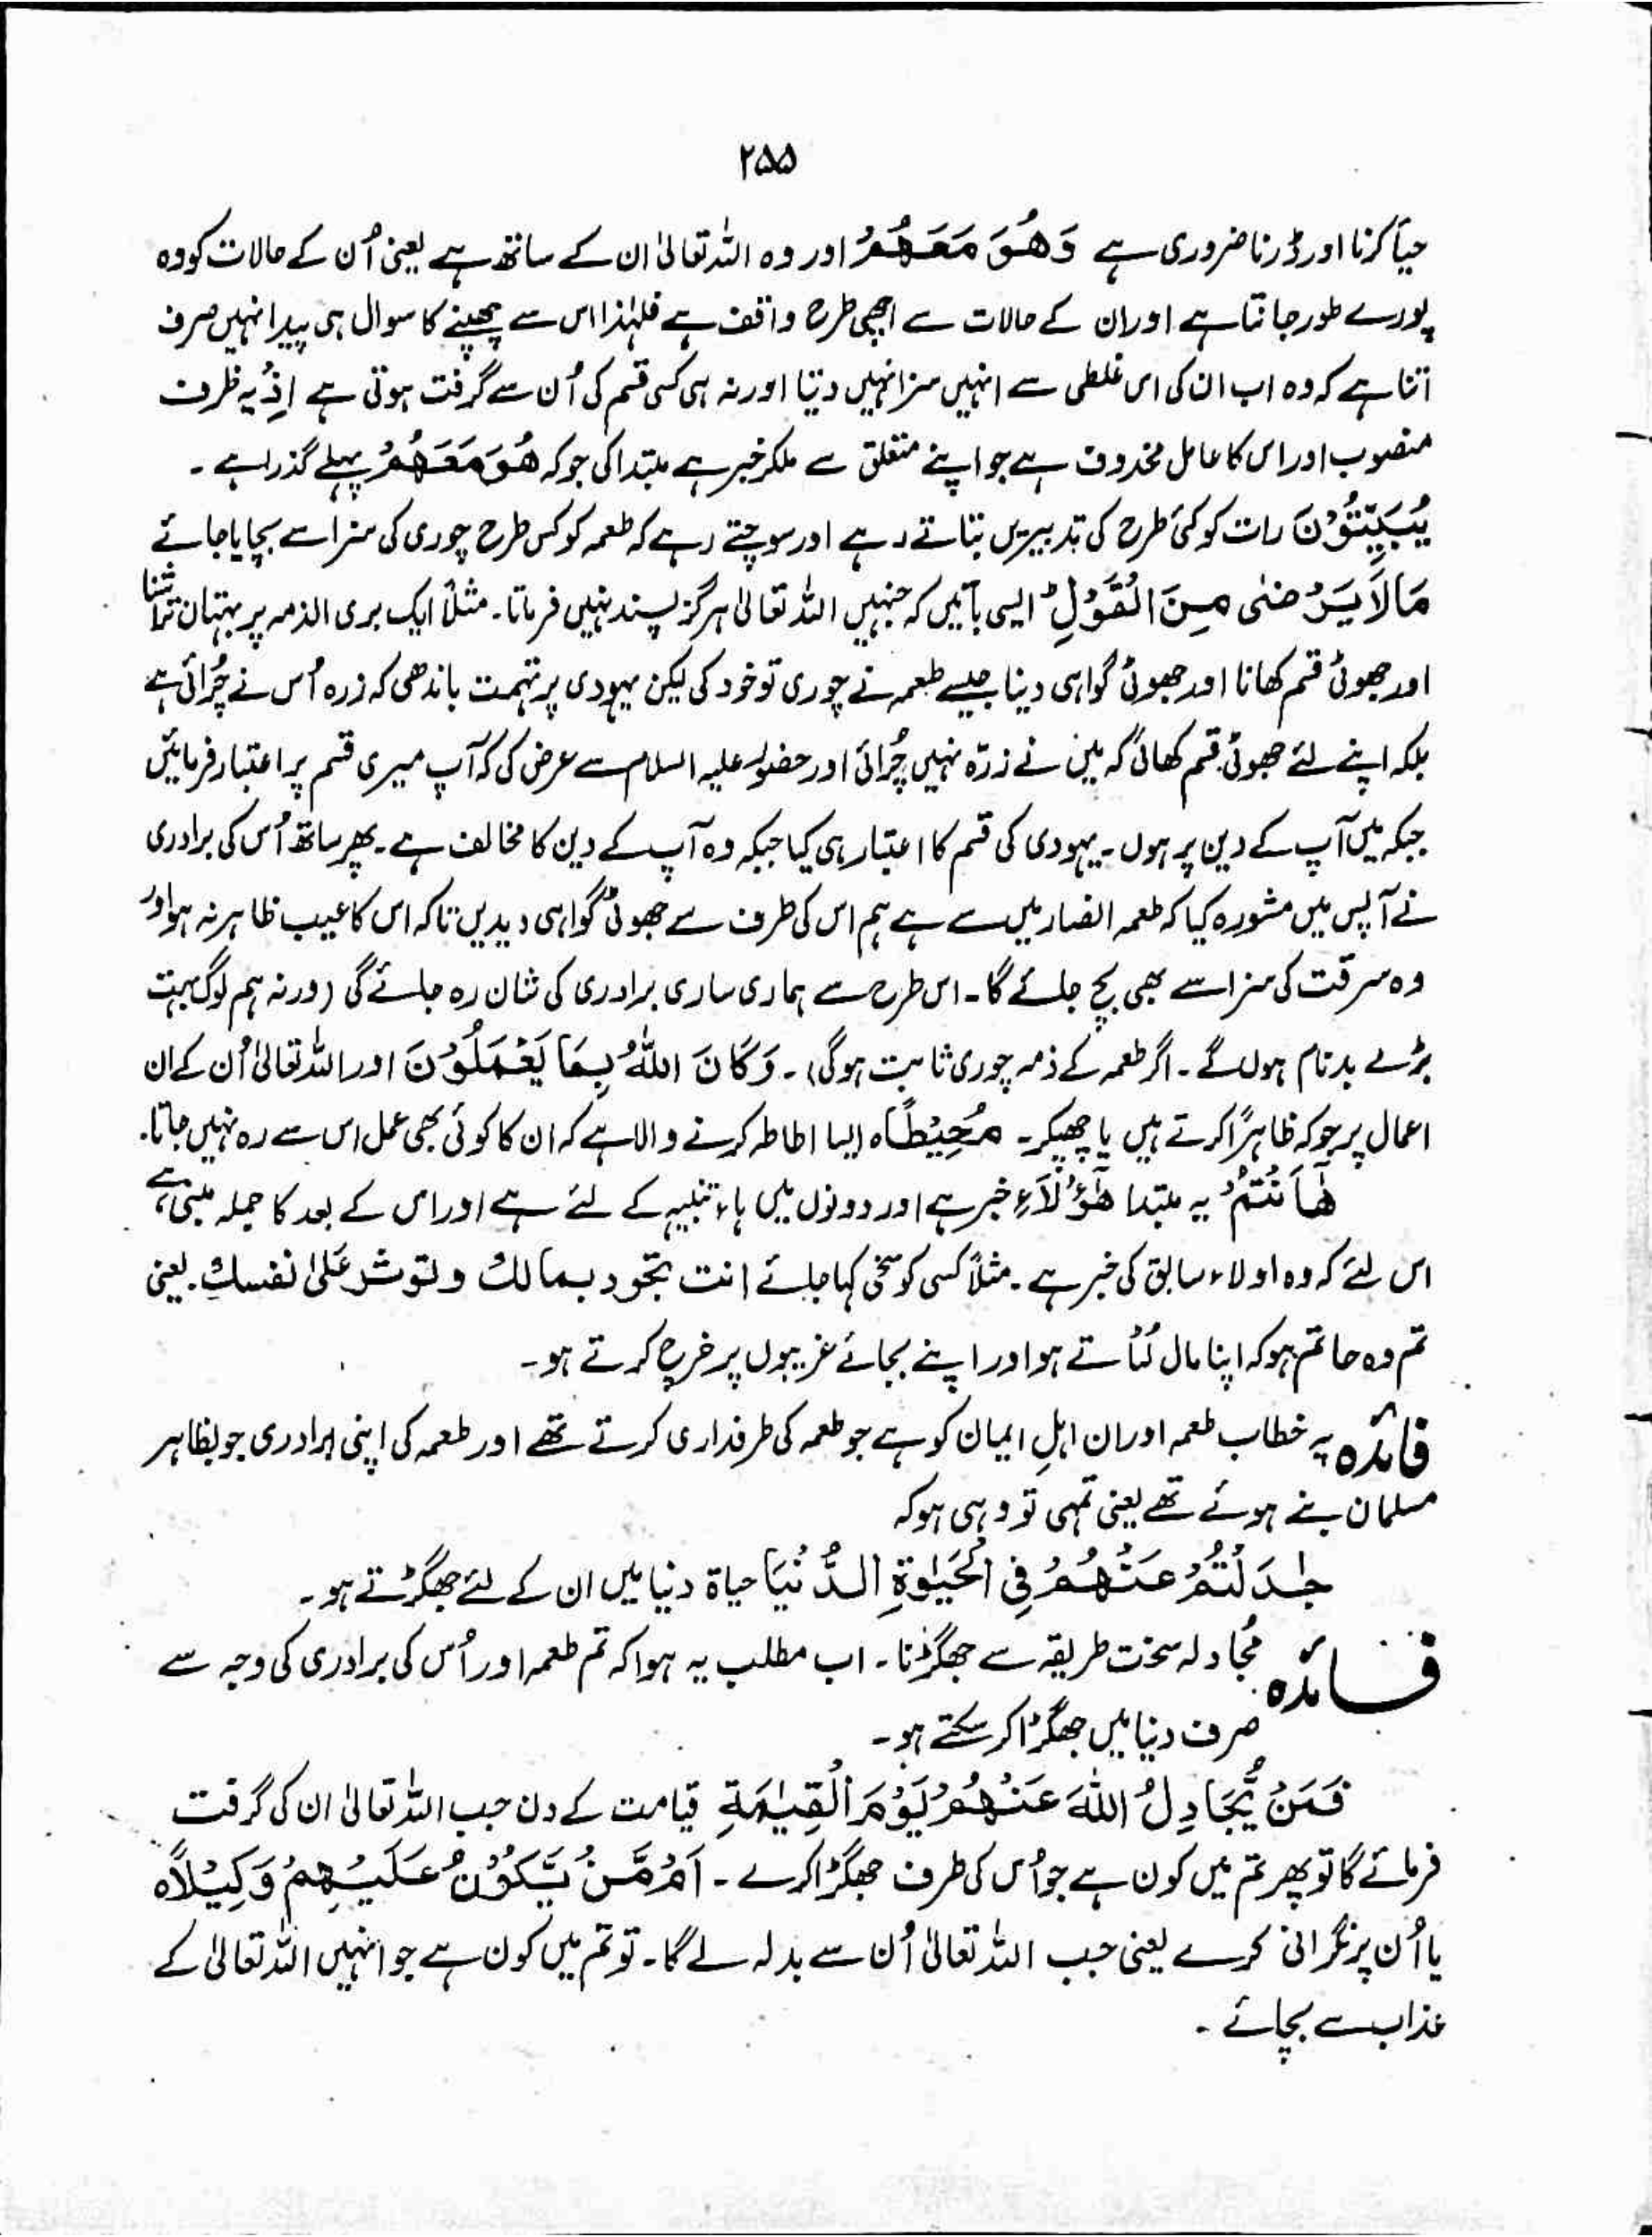 ۲۵۵
حیا کرنا اور ڈرنا ضروری ہے وَهُوَ مَعَهُمْ اور وہ اللہ تعالیٰ ان کے ساتھ ہے یعنی اُن کے حالات کو وہ
پورے طور جانتا ہے اور ان کے حالات سے اچھی طرح واقف ہے فلہٰذا اس سے چھپنے کا سوال ہی پیدا نہیں صرف
اتنا ہے کہ وہ اب ان کی اس غلطی سے انہیں سزا نہیں دیتا اور نہ ہی کسی قسم کی اُن سے گرفت ہوتی ہے اِذْ یہ ظرف
منصوب اور اس کا عامل محذوف ہے جو اپنے متعلق سے ملکر خبر ہے مبتدا کی جو کہ هُوَ مَعَهُمْ پہلے گذرا ہے ۔
يُبَيِّتُوْنَ رات کو کئی طرح کی تدبیریں بتاتے رہے اور سوچتے رہے کہ طعمہ کو کس طرح چوری کی سزا سے بچایا جائے
مَالَا يَرْضٰى مِنَ الْقَوْلِ ؕ ایسی باتیں کہ جنہیں اللہ تعالیٰ ہرگز پسند نہیں فرماتا ۔ مثلاً ایک بری الذمہ پر بہتان تراشنا
اور جھوٹی قسم کھانا اور جھوٹی گواہی دینا جیسے طعمہ نے چوری تو خود کی لیکن یہودی پر تہمت باندھی کہ زرہ اُس نے چُرائی ہے
بلکہ اپنے لئے جھوٹی قسم کھائی کہ میں نے زرّہ نہیں چُرائی اور حضور علیہ السلام سے عرض کی کہ آپ میری قسم پر اعتبار فرمائیں
جبکہ میں آپ کے دین پر ہوں ۔ یہودی کی قسم کا اعتبار ہی کیا جبکہ وہ آپ کے دین کا مخالف ہے ۔ پھر ساتھ اُس کی برادری
نے آپس میں مشورہ کیا کہ طعمہ انصار میں سے ہے ہم اس کی طرف سے جھوٹی گواہی دیدیں تاکہ اس کا عیب ظاہر نہ ہو اور
وہ سرقت کی سزا سے بھی بچ جائے گا ۔ اس طرح سے ہماری ساری برادری کی شان رہ جائے گی (ورنہ ہم لوگ بہت
بڑے بدنام ہوں گے ۔ اگر طعمہ کے ذمہ چوری ثابت ہوگی) ۔ وَكَانَ اللّٰهُ بِمَا يَعْمَلُوْنَ اور اللہ تعالیٰ اُن کے ان
اعمال پر جو کہ ظاہراً کرتے ہیں یا چھپکر ۔ مُحِيْطًا ہ ایسا احاطہ کرنے والا ہے کہ ان کا کوئی بھی عمل اس سے رہ نہیں جاتا ۔
هٰۤاَنْتُمْ یہ مبتدا هٰۤؤُلَاءِ خبر ہے اور دونوں میں ہاء تنبیہ کے لئے ہے اور اس کے بعد کا جملہ مبنی ہے
اس لئے کہ وہ اولاء سابق کی خبر ہے ۔ مثلاً کسی کو سخی کہا جائے انت تجود بمالك وتوثر علیٰ نفسك ۔ یعنی
تم وہ حاتم ہو کہ اپنا مال لُٹاتے ہو اور اپنے بجائے غریبوں پر خرچ کرتے ہو ۔
فائدہ یہ خطاب طعمہ اور ان اہلِ ایمان کو ہے جو طعمہ کی طرفداری کرتے تھے اور طعمہ کی اپنی برادری جو بظاہر
مسلمان بنے ہوئے تھے یعنی تمہی تو وہی ہو کہ
جٰدَلْتُمْ عَنْهُمْ فِى الْحَيٰوةِ الدُّنْيَا حیاۃ دنیا میں ان کے لئے جھگڑتے ہو ۔
فائدہ مُجادلہ سخت طریقہ سے جھگڑنا ۔ اب مطلب یہ ہوا کہ تم طعمہ اور اُس کی برادری کی وجہ سے
صرف دنیا میں جھگڑا کر سکتے ہو ۔
فَمَنْ يُّجَادِلُ اللّٰهَ عَنْهُمْ يَوْمَ الْقِيٰمَةِ قیامت کے دن جب اللہ تعالیٰ ان کی گرفت
فرمائے گا تو پھر تم میں کون ہے جو اُس کی طرف جھگڑا کرے ۔ اَمْ مَّنْ يَّكُوْنُ عَلَيْهِمْ وَكِيْلًا ہ
یا اُن پر نگرانی کرے یعنی جب اللہ تعالیٰ اُن سے بدلہ لے گا ۔ تو تم میں کون ہے جو انہیں اللہ تعالیٰ کے
عذاب سے بچائے ۔